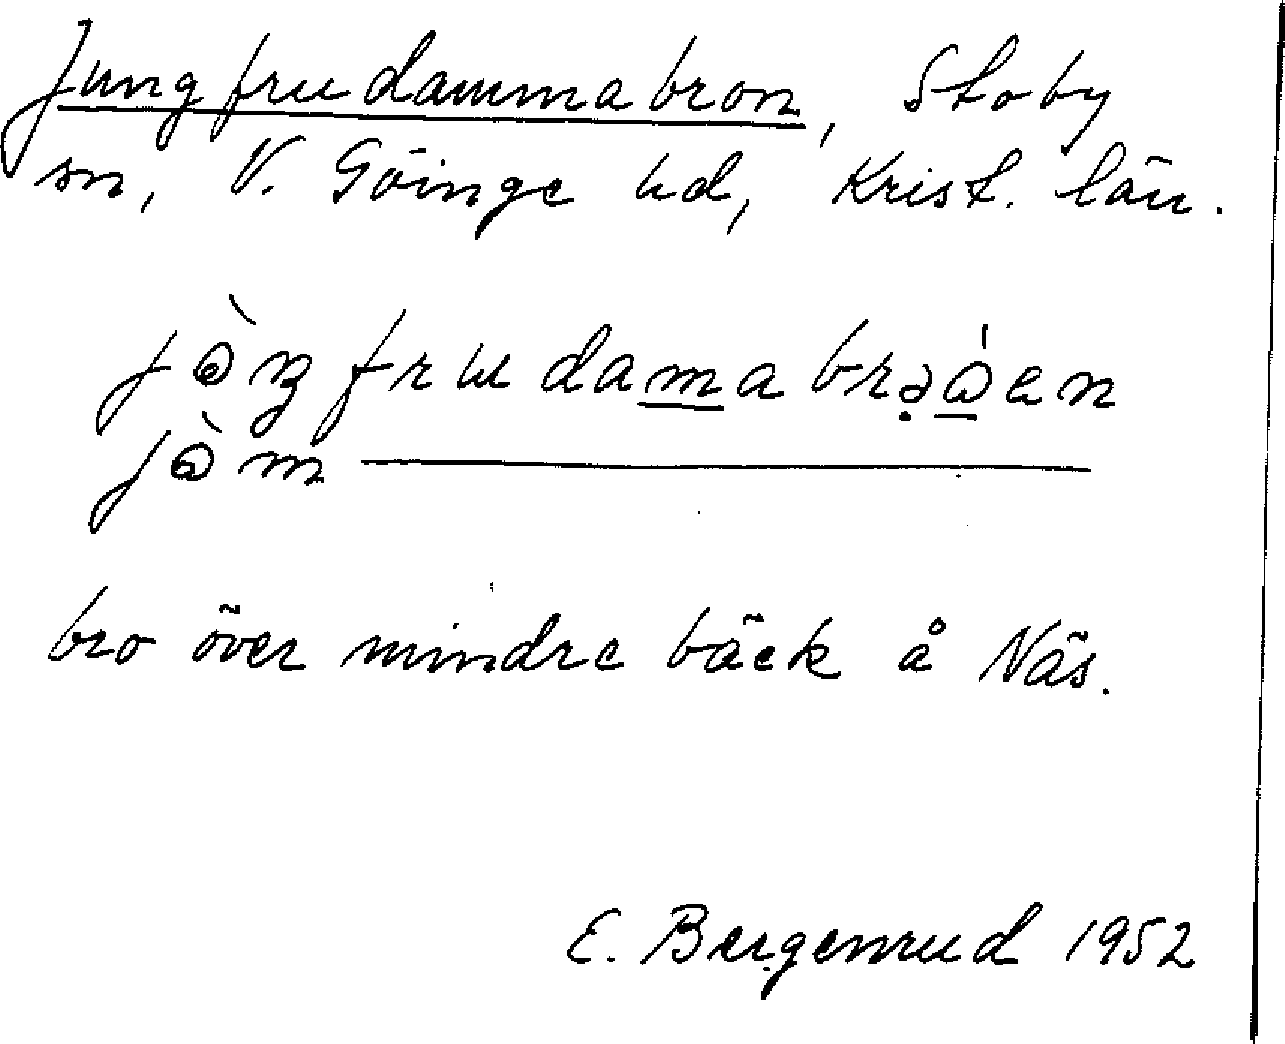 Jungfrudammabron, Stoby
sn, V. Göinge hd, Krist. län.
jòŋfrudamabrəóen
jòm ————
bro över mindre bäck å Näs.
E. Bergenrud 1952